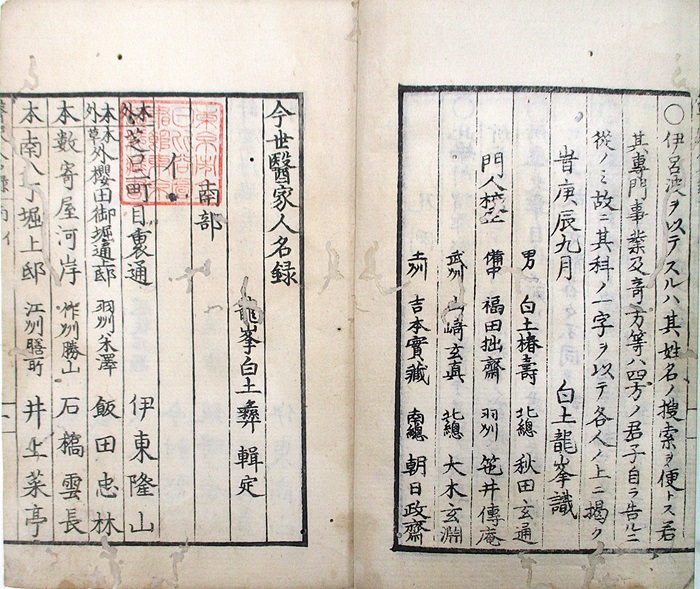 〇伊呂波ヲ以テスルハ其姓名ノ搜索ニ便トス若
其專門事業及奇方等ハ四方ノ君子自ラ告ルニ
從ノミ故ニ其科ノ一字ヲ以テ各人ノ上ニ揭ク
旹庚辰九月 白土龍峯識
男 白土椿壽 北總 秋田玄通
門人挍正 備中 福田拙齋 羽州 笹井傳庵
武州 山﨑玄真 北總 大木玄淵
土州 吉本實藏 南總 朝日政齋
今世醫家人名録
龍峯白土彝輯定
南部
イ
本外 芝口町目裏通 伊東隆山
本外 外櫻田御堀通邸 羽州米澤 飯田忠林
本 數寄屋河岸 作州勝山 石橋雲長
本 南八丁堀上邸 江州膳所 井上菜亭